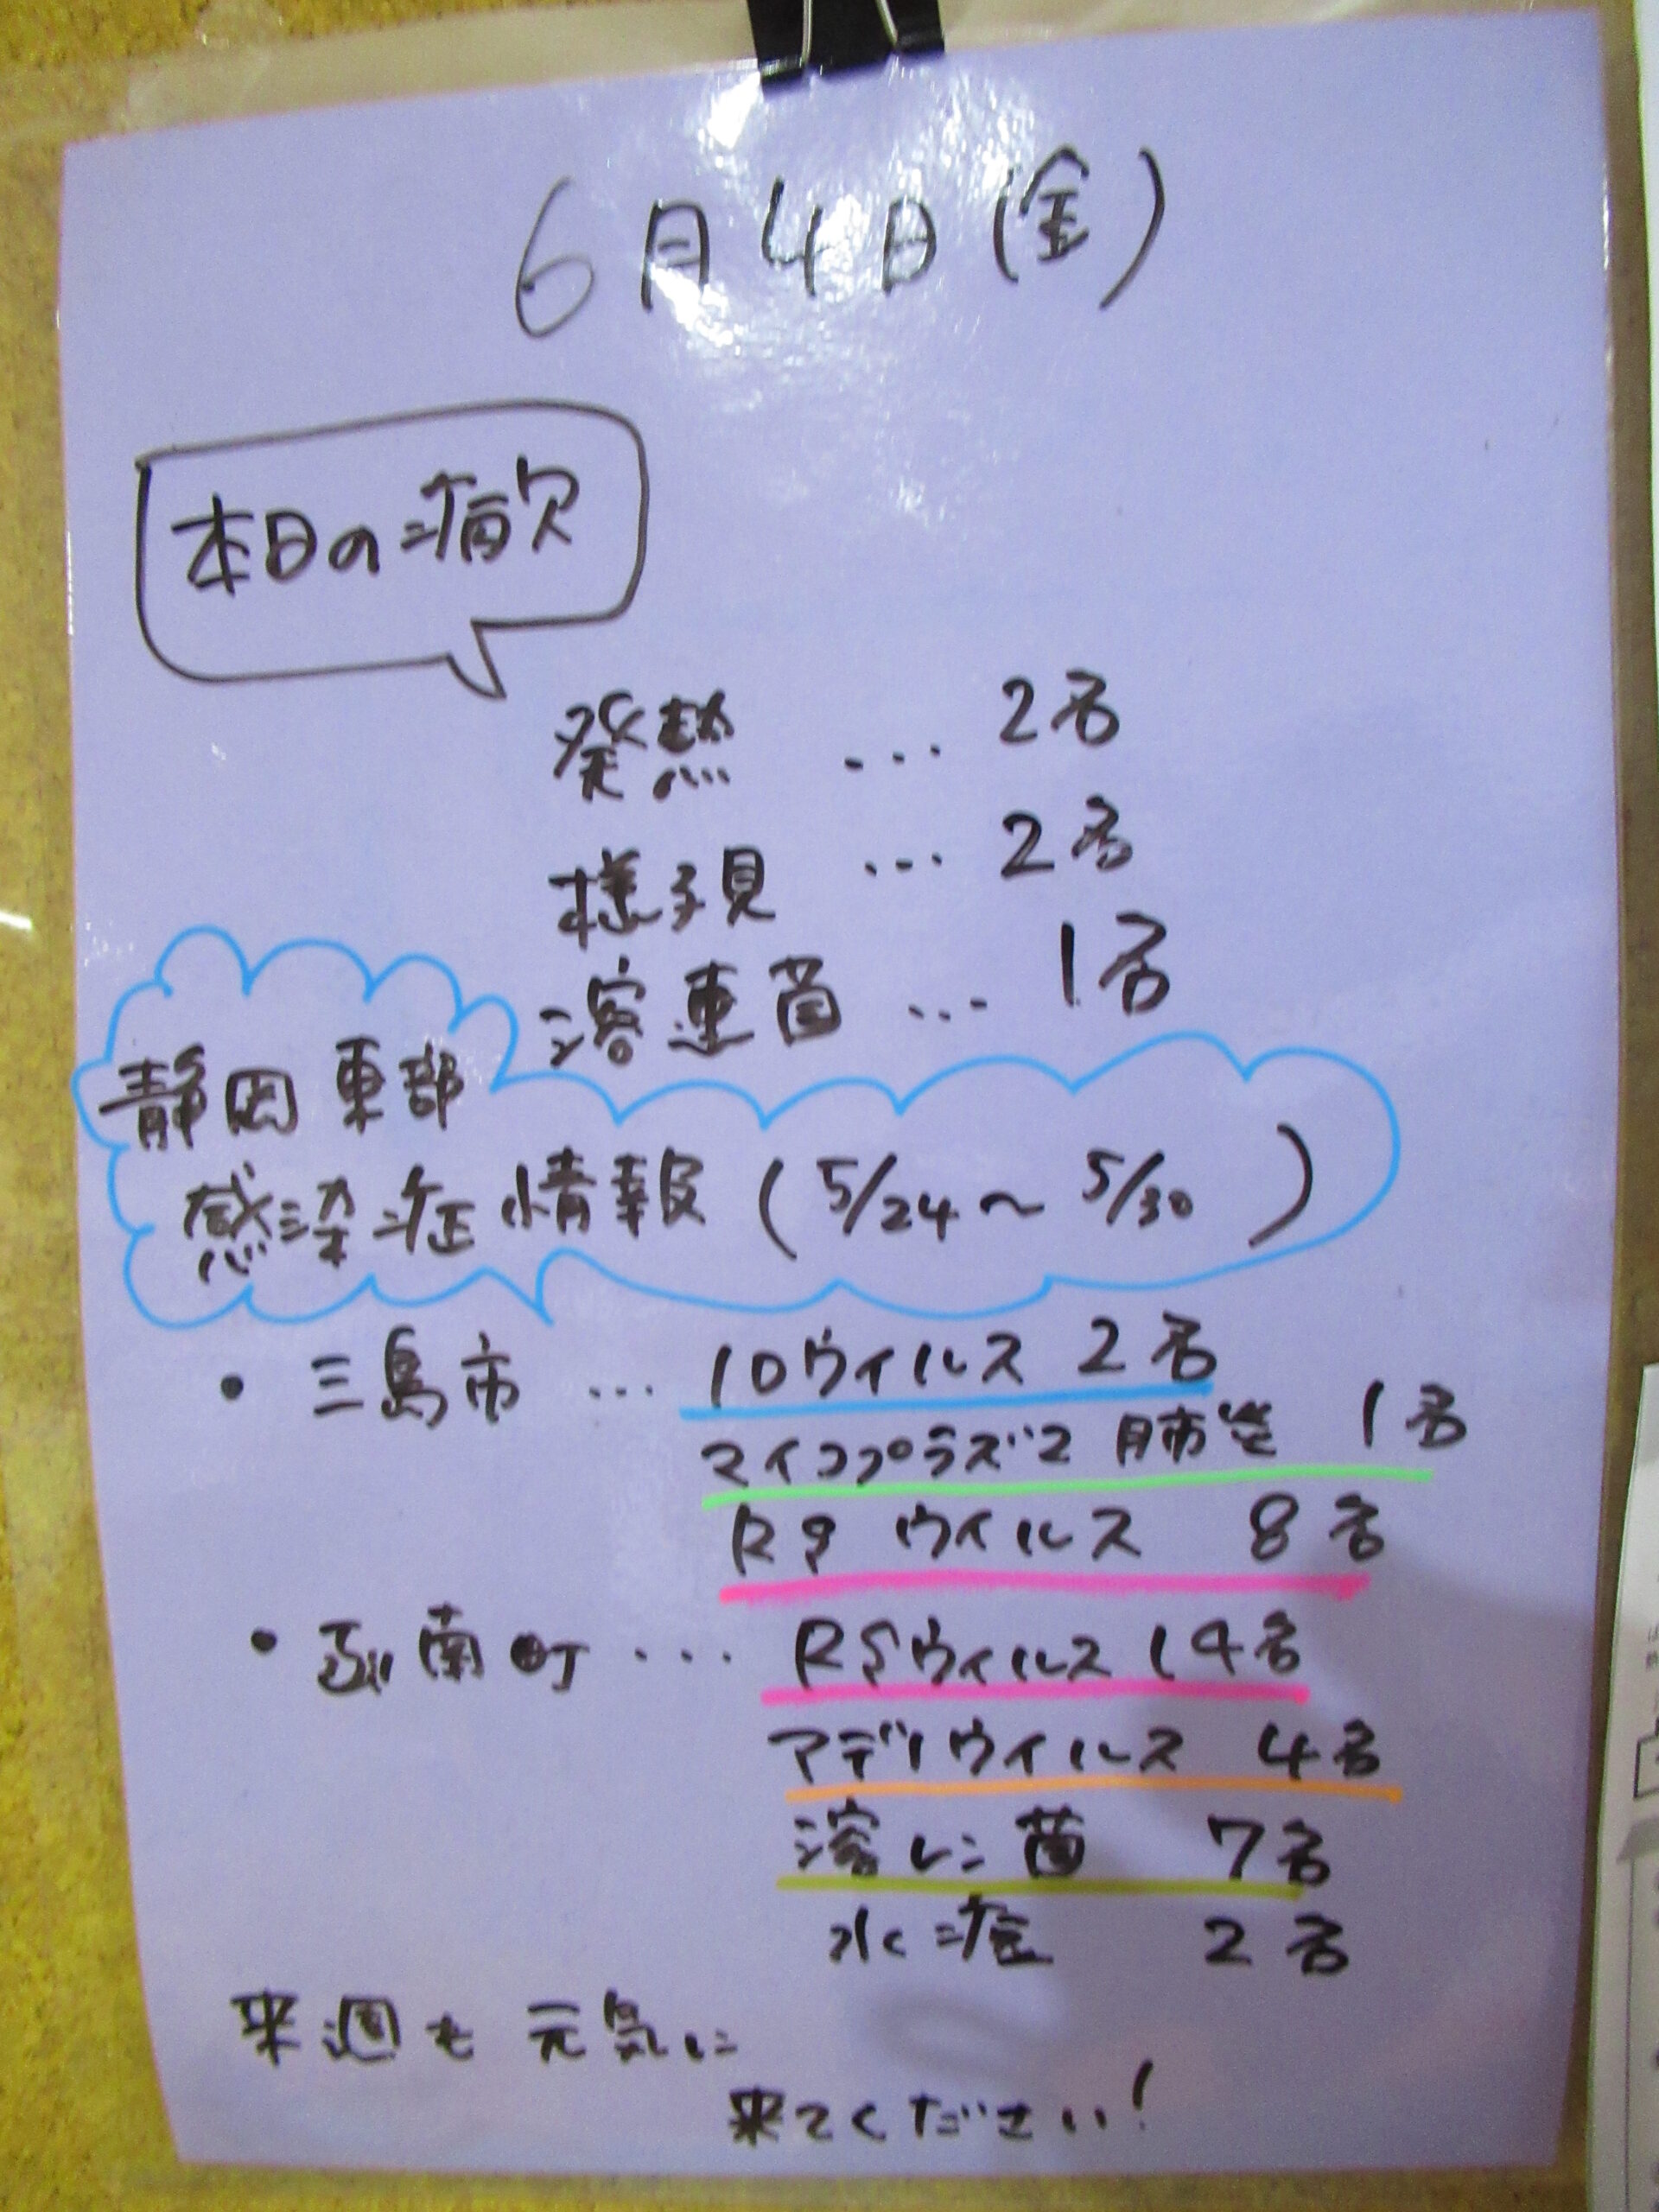 6月4日(金)
本日の病欠
発熱 ... 2名
様子見 ... 2名
溶連菌 ... 1名
静岡東部
感染症情報(5/24〜5/30)
・三島市 ... ロウイルス 2名
マイコプラズマ肺炎 1名
RSウイルス 8名
・函南町 ... RSウィルス 14名
アデノウイルス 4名
溶レン菌 7名
水痘 2名
来週も元気に
来てください!